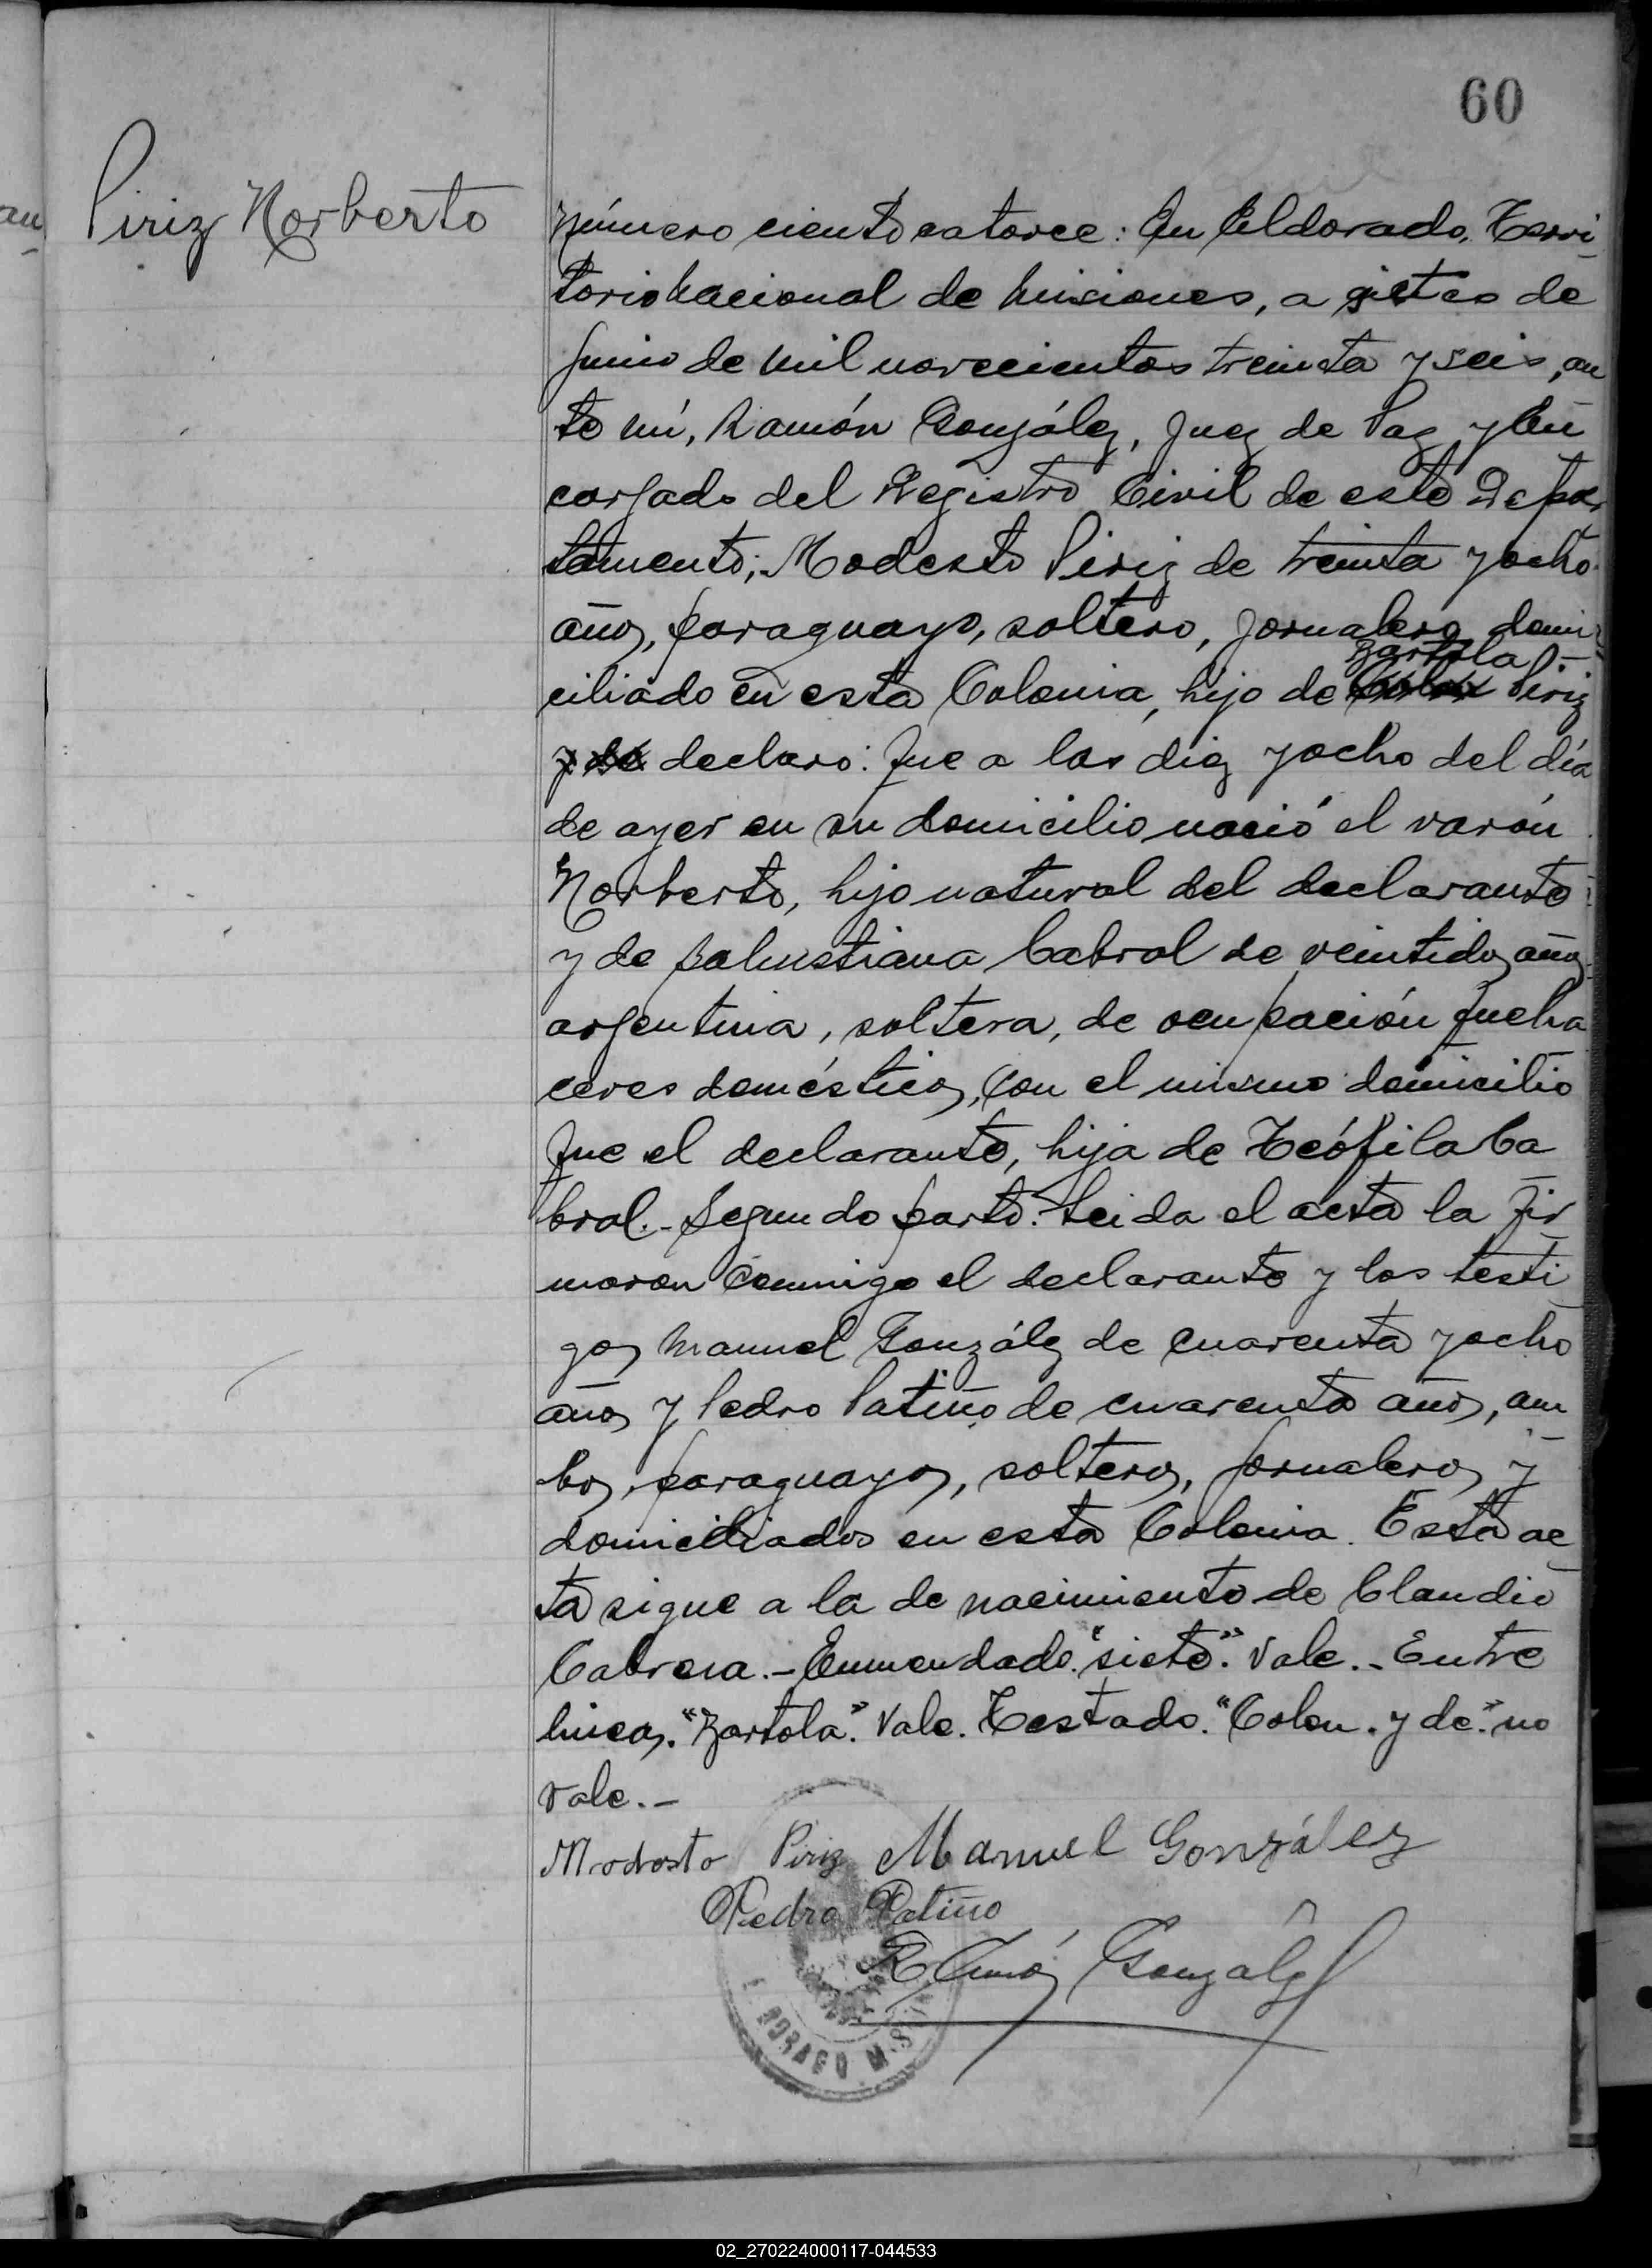 60
Piriz Norberto
Número ciento catorce: En Eldorado, Terri
torio Nacional de Misiones, a siete de
Junio de mil novecientos treinta y seis, an
te mí, Ramón González, Juez de Paz y En
cargado del Registro Civil de este Depar
tamento; Modesto Piriz de treinta y ocho
años, paraguayo, soltero, jornalero, domi
Bartola
ciliado en esta Colonia, hijo de Colon Piriz
y de declaro: Que a las diez y ocho del día
de ayer en su domicilio nació el varón
Norberto, hijo natural del declarante
y de Salustiana Cabral de veintidos años
argentina, soltera, de ocupación queha
ceres domésticos, con el mismo domicilio
que el declarante, hija de Teófila Ca
bral.- Segundo parto. Leida el acta la fir
maron conmigo el declarante y los testi
gos Manuel González de cuarenta y ocho
años y Pedro Patiño de cuarenta años, am
bos, paraguayos, solteros, jornaleros y
domiciliados en esta Colonia. Esta ac
ta sigue a la de nacimiento de Claudio
Cabrera.- Enmendado. "siete". Vale.- Entre
lineas. "Bartola". Vale. Testado. "Colon. y de." no
vale.-
Modesto Piriz Manuel González
Pedro Patiño
Ramón González
ELDORADO MIS
02_270224000117-044533